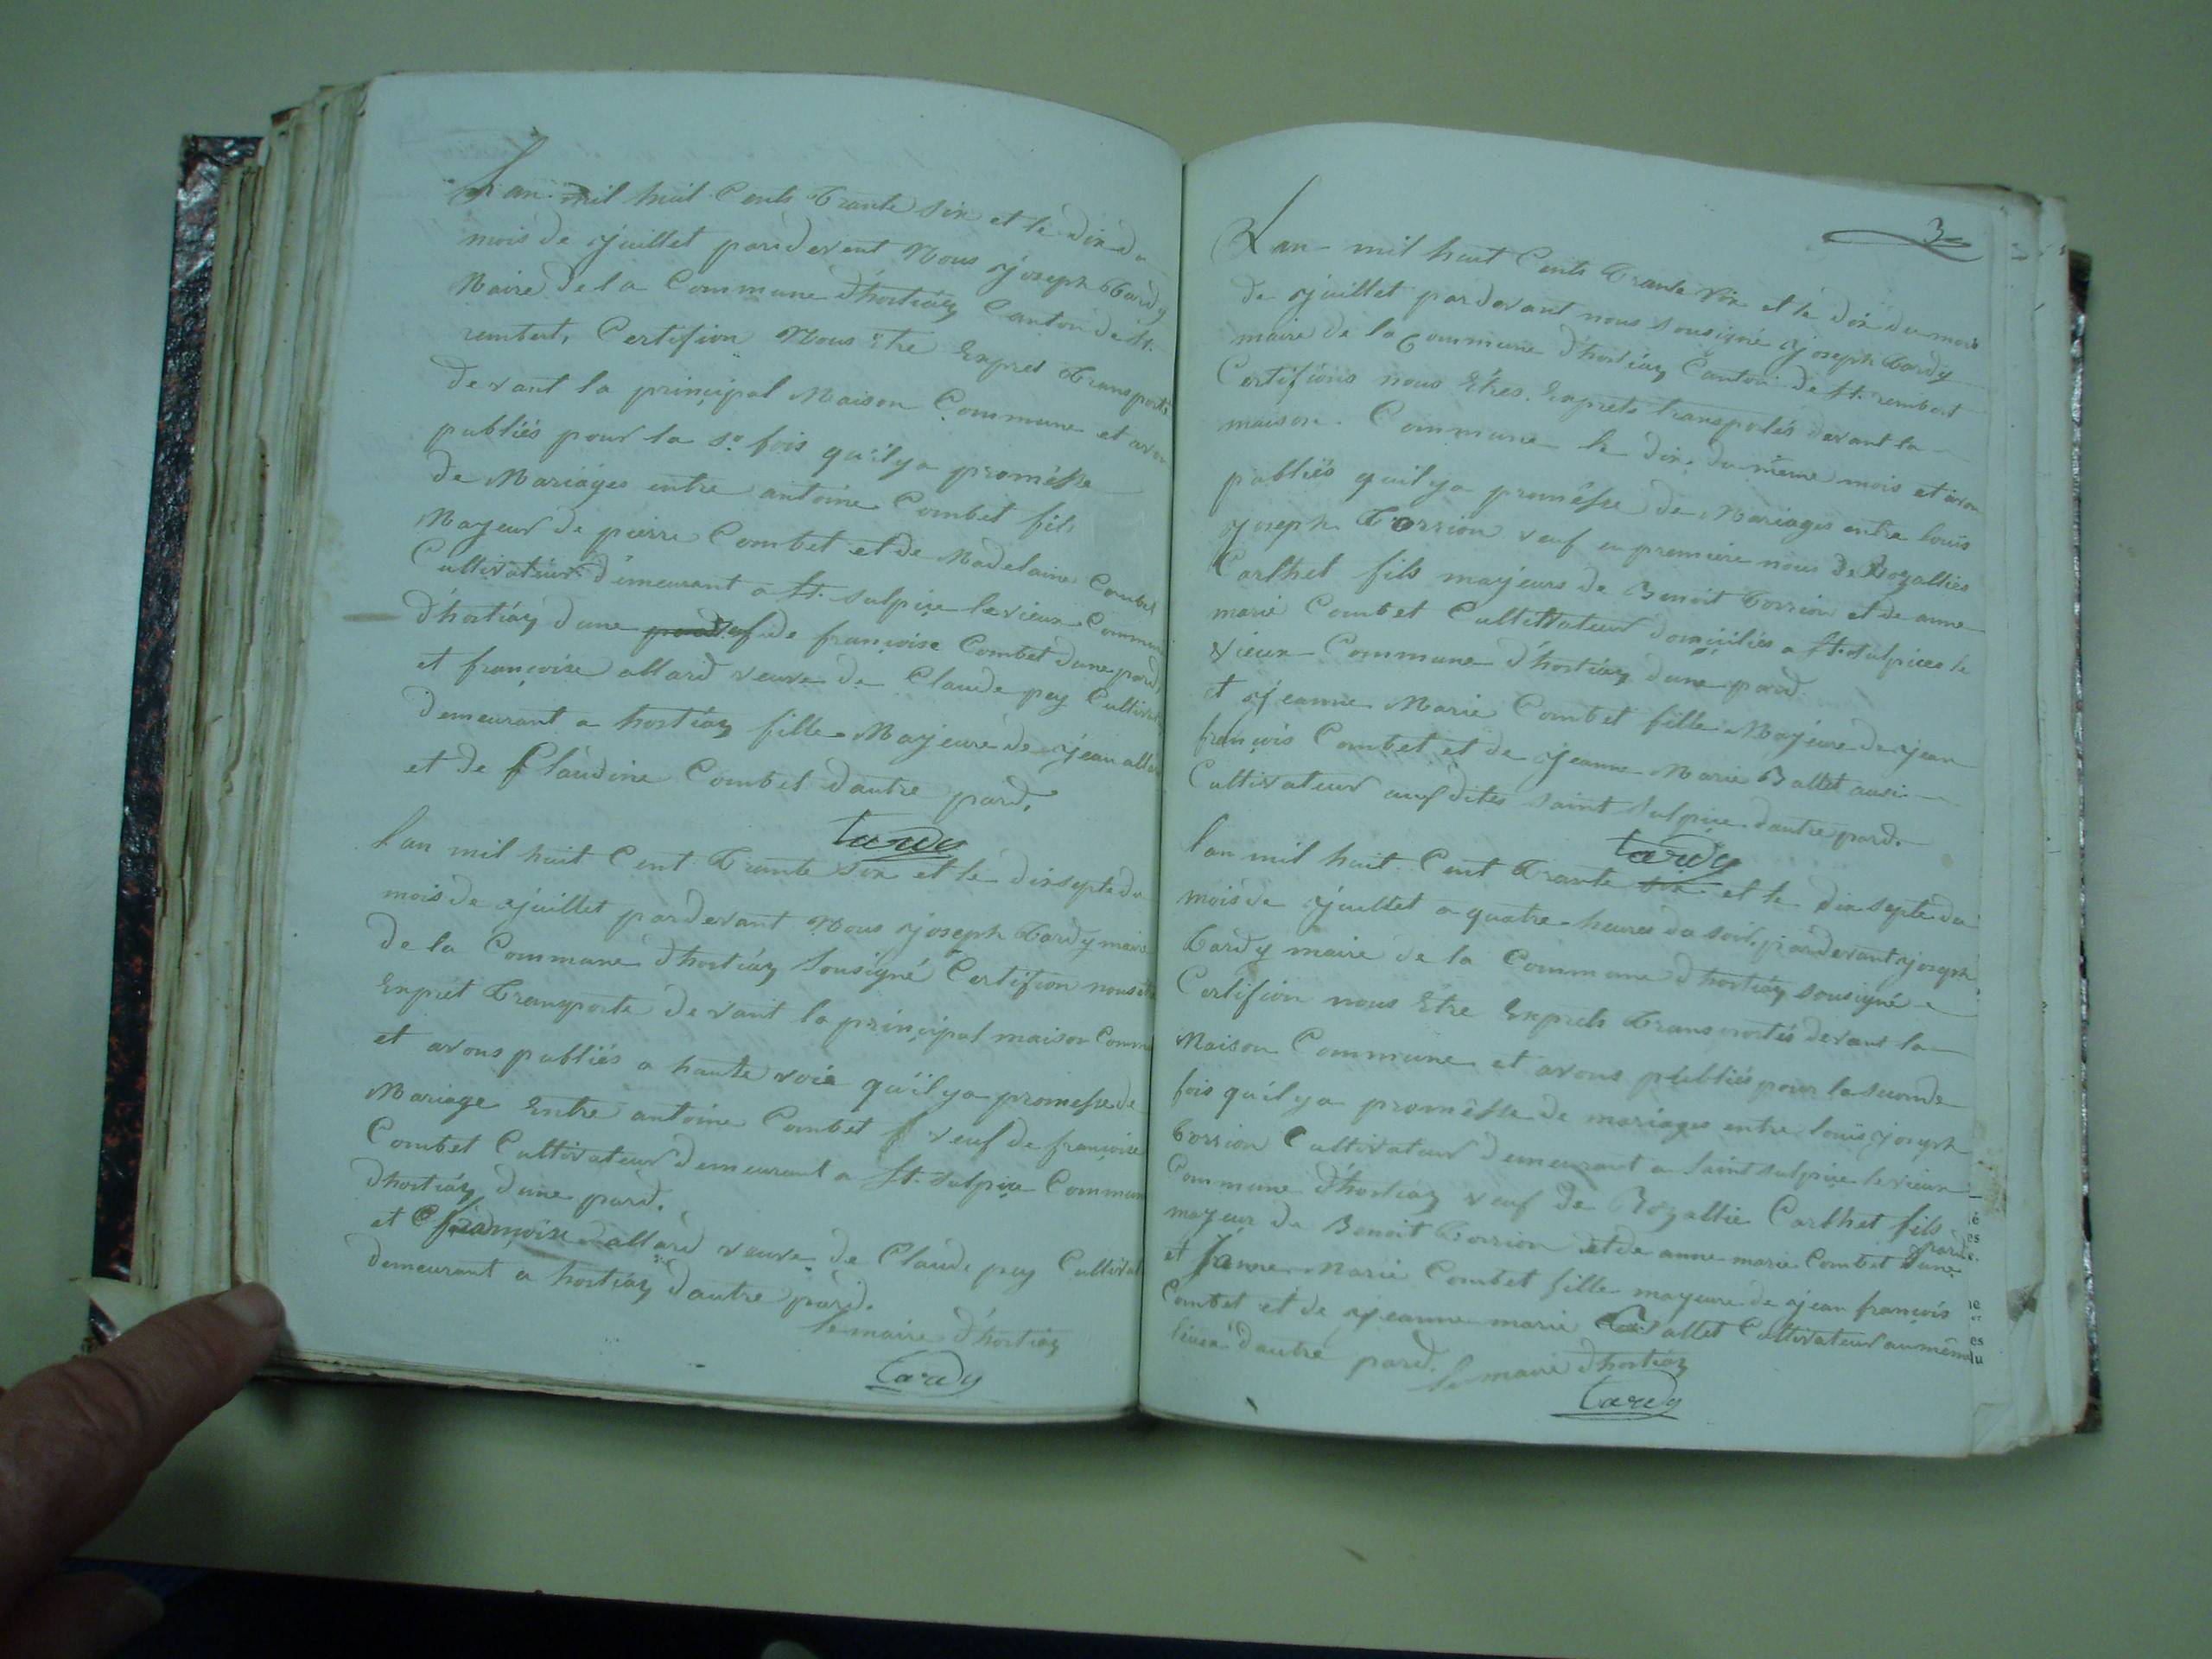 Lan mil huit Cents Trante six et le dix du
mois de juillet pardevent Nous joseph Tardy
Maire de la Commune d'hostiaz Canton de St.
rembert, Certifion Nous Etre Expres Transporté
devant la principal Maison Commune et avon
publiés pour la 1e. fois qu'il ya promesse
de Mariages entre antoine Combet fils
Mayeur de pierre Combet et de Madelaine Combet
Cultivateur d'emeurant a St. sulpice le vieux Commune
d'hostiaz d'une de françoise Combet dune pard,
et françoise allard veuve de Claude pey Cultiv
demeurant a hostiaz fille Majeure de jean allar
et de Claudine Combet dautre pard.
tardy
lan mil huit Cent Trante six et le dixsepte du
mois de juillet pardevant Nous joseph Tardy maire
de la Commune d'hostiaz sousigné Certifion nous
Expret Transporte devant la principal maison Comm
et avons publiés a haute voie qu'il ya promesse de
Mariage Entre antoine Combet veuf de françoise
Combet Cultivateur demeurant a St. sulpice Commun
dhostiaz dune pard.
et françoise allard veuve de Claude pey Cultivat
demeurant a hostiaz dautre pard.
le maire d'hostiaz
tardy
3
Lan mil huit Cents Trante six et le dix du mois
de juillet pardevant nous sousigné joseph Tardy
maire de la Commune d'hostiaz Canton de St. rembert
Certifions nous Etres Exprets transportés devant la
maison Commune le dix du même mois et avon
publiés qu'il ya promesse de Mariages entre louis
joseph Torrion veuf en premiere nous de Rozallies
Carthet fils majeurs de Benoit Torrion et de anne
marie Combet Cultivateur domicilies a St. sulpices le
vieux Commune d'hostiaz dune pard.
et jeanne Marie Combet fille Majeure de jean
françois Combet et de jeanne Marie Ballet ausi
Cultivateur dites saint sulpice dautre pard.
tardy
lan mil huit Cent Trante six et le dix septe du
mois de juillet a quatre heures du soir, pardevant joseph
Tardy maire de la Commune d'hostiaz sousigné
Certifion nous Etre Exprets Transportés devant la
Maison Commune et avons publiés pour la seconde
fois qu'il ya promesse de mariages entre louis joseph
Torrion Cultivateur demeurant a saint sulpice le vieux
Commune d'hostiaz veuf de Rozallie Carthet fils
mayeur de Benoit Torrion et de anne marie Combet dune pard.
et Janne Marie Combet fille mayeure de jean françois
Combet et de jeanne marie Ballet Cultivateur au même
lieux dautre pard.
le maire d'hostiaz
tardy